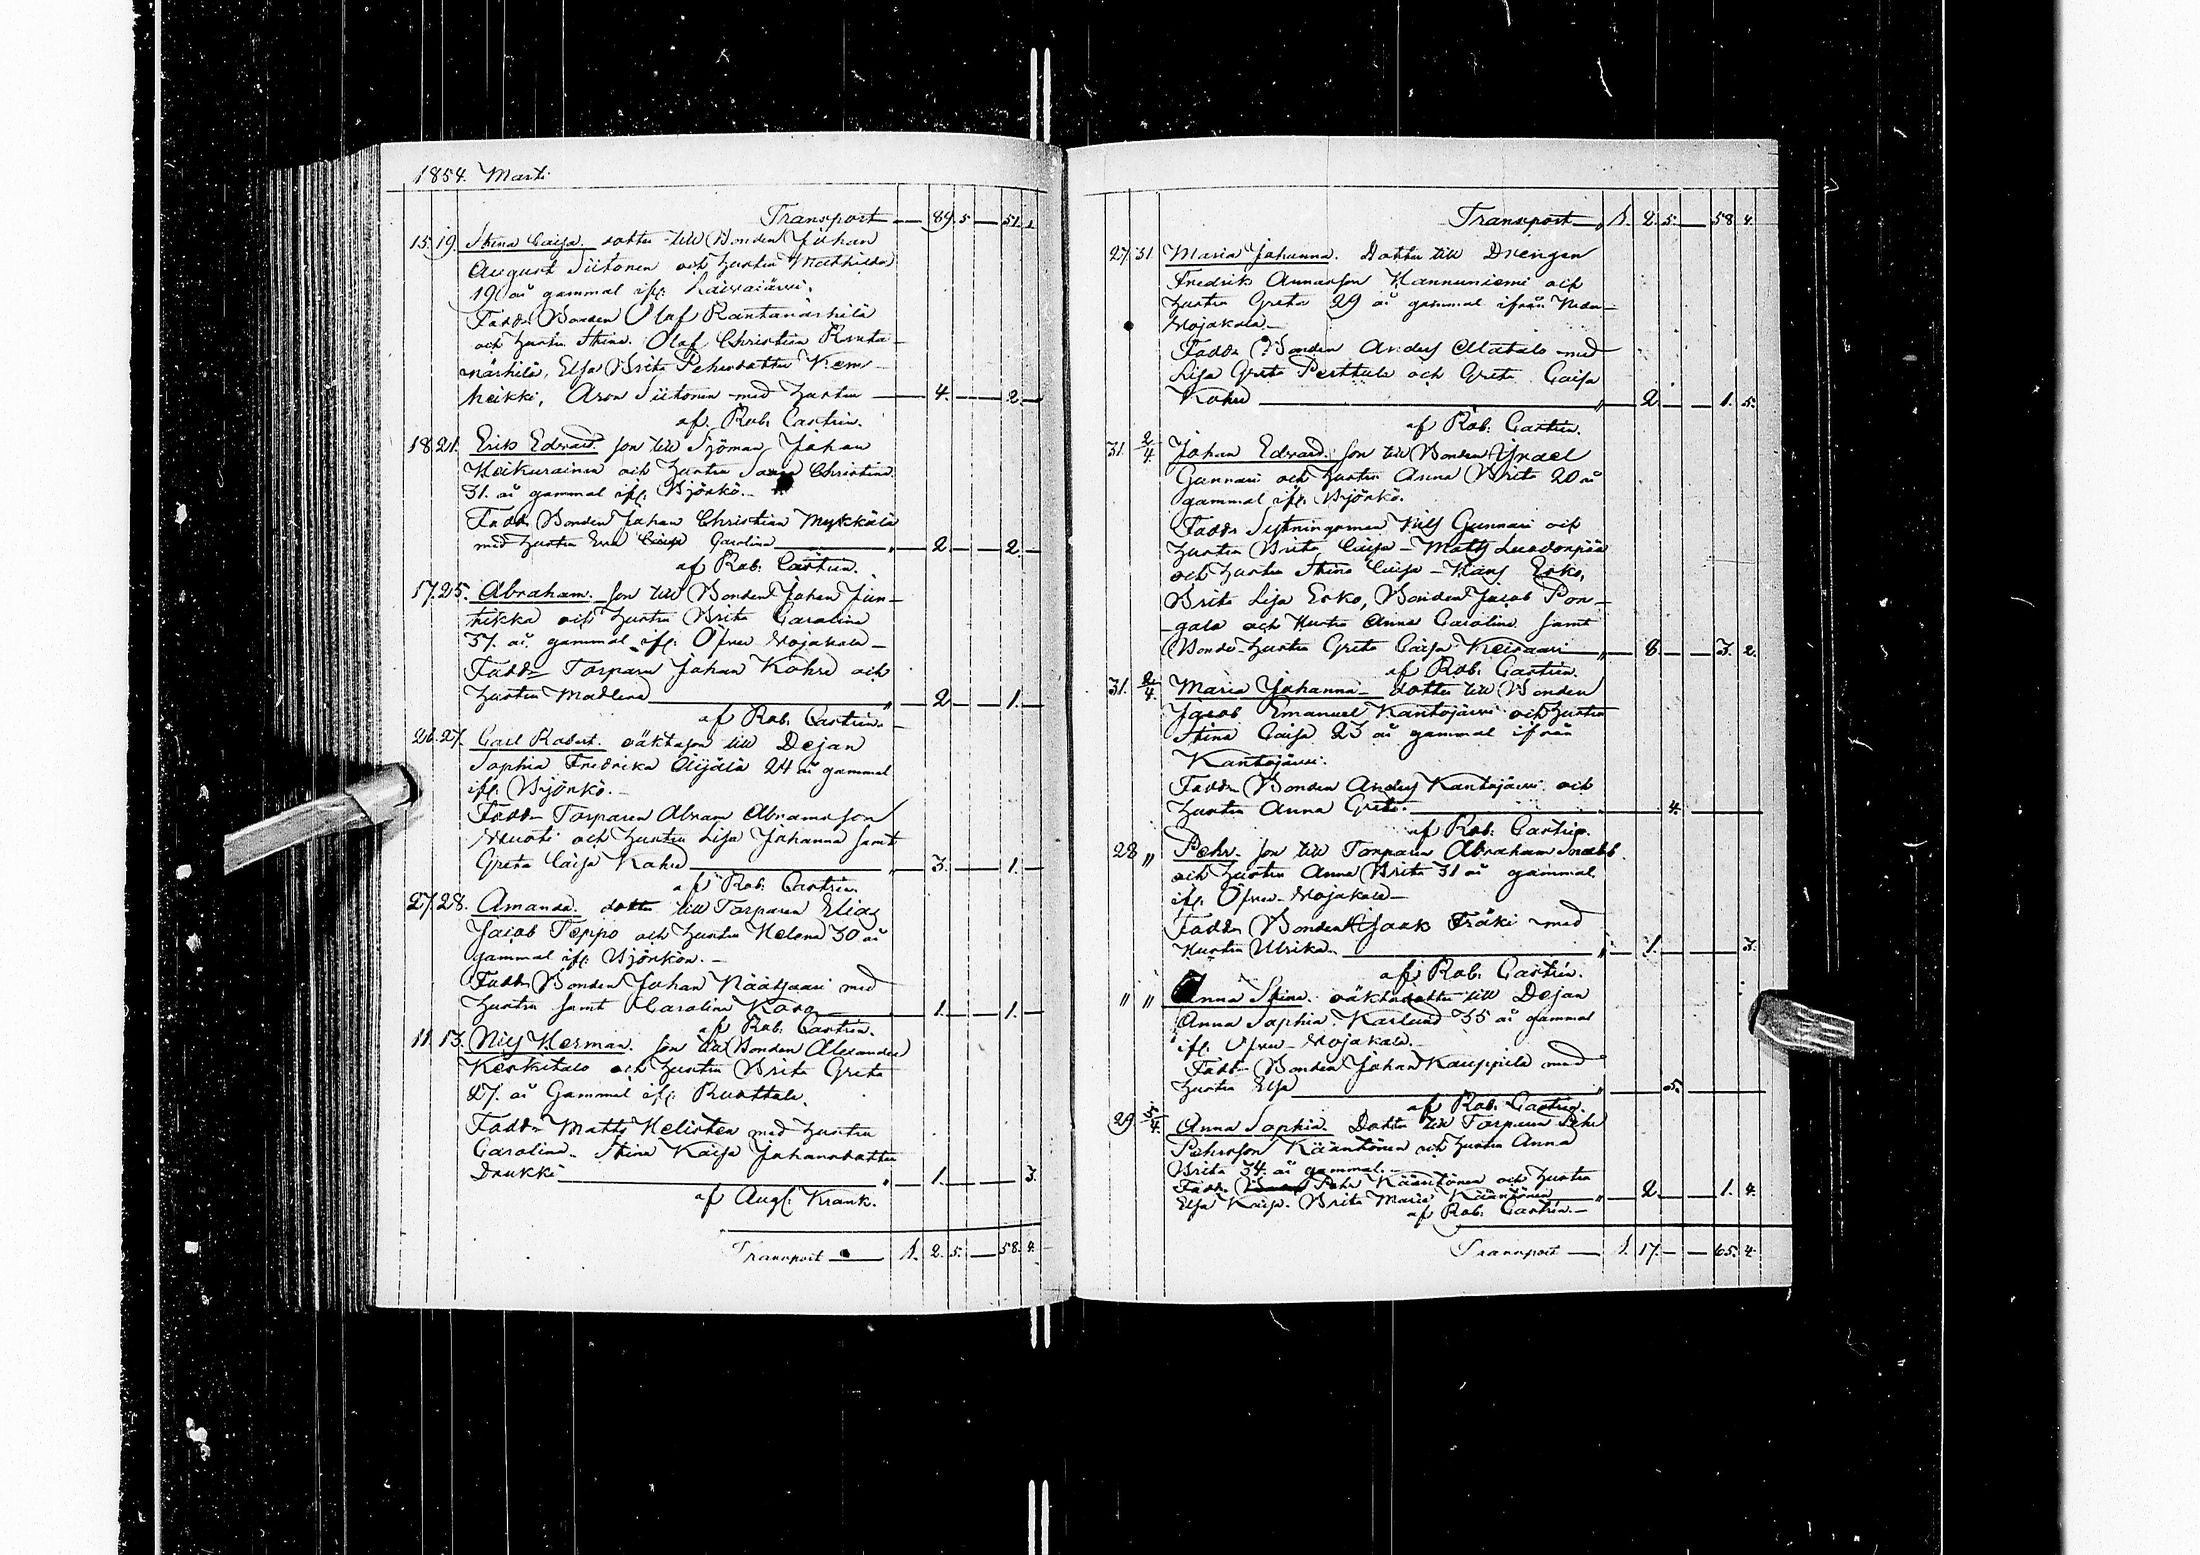 1854. Marti
Transport — 89. 5 — 51. 1
15. 19. Stina Caisa. dotter till Bonden Johan
August Siitonen och hustru Mathilda
19 år gammal ifr.
Fadd. Bonden Olof
och hustru Stina. Olof Christian Ranta-
Elsa Brita Pehrsdotter Kem-
heikki, Aron Siitonen med hustru — 4. — 2. —
af Rob. Castrén.
18. 21. Erik Edvard. son till Sjöman Johan
Heikurainen och hustru Christina
31. år gammal ifr. Björkö. —
Fadd. Bonden Johan Christian Mykkälä
med hustru Eva Carolina — 2 — 2. —
af Rob. Castrén.
17. 25. Abraham. son till Bonden Johan Jun-
tikka och hustru Brita Carolina
37. år gammal ifr. Öfver Vojakala —
Fadd. Torparen Johan Kohri och
hustru Madlena — 2 — 1. —
af Rob. Castrén. —
26. 27. Carl Robert. oäkta son till Dejan
Sophia Fredrika Äijälä 24 år gammal
ifr. Björkö. —
Fadd. Torparen Abram Abramsson
och hustru Lisa Johanna samt
Greta Caisa Kohri — 3. — 1. —
af Rob. Castrén.
27. 28. Amanda. dotter till Torparen Elias
Jacob Teppo och hustru Helena 30 år
gammal ifr. Björkön. —
Fadd. Bonden Johan med
hustru samt Carolina — 1. — 1. —
af Rob. Castrén.
11. 13. Nils Herman. son till Bonden Alexander
Keskitalo och hustru Brita Greta
27. år Gammal ifr. Ruottala.
Fadd. Matts Helisten med hustru
Carolina. Stina Kaisa Johansdotter
— 1. — 3.
af Aug. Krank.
Transport — 1. 2. 5. — 58. 4.
Transport — 1. 2. 5. — 58 4.
27. 31 Maria Johanna. Dotter till Drengen
Fredrik Annasson Hannuniemi och
hustru Greta 29 år gammal ifrån Neder-
Vojakala. —
Fadd. Bonden Anders Alatalo med
Lisa Greta Perttula och Greta Caisa
Kohri — 2. — 1. 5.
af Rob. Castrén.
31. 2/4. Johan Edvard. Son till Bonden Israel
Gunnari och hustru Anna Brita 20 år
gammal ifr. Björkö.
Fadd. Sytningsman Nils Gunnari och
hustru Brita Caisa — Matts
och hustru Stina Caisa — Hans Erko,
Brita Lisa Erko, Bonden Jacob Pon-
gala och Hustru Anna Carolina samt
Bonde-hustru Greta Caisa — 8. — 3. 2.
af Rob. Castrén.
31. 2/4. Maria Johanna — dotter till Bonden
Jacob Emanuel Kantojärvi och hustru
Stina Caisa 23 år gammal ifrån
Kantojärvi.
Fadd. Bonden Anders Kantojärvi och
hustru Anna Greta. — 4. —
af Rob. Castrén.
28 " Pehr. son till Torparen Abraham Snabb
och hustru Anna Brita 31 år gammal
ifr. Öfver-Vojakala —
Fadd. Bonden Isaak Fräki med
Hustru Ulrika. — 1. — 3.
af Rob. Castrén.
" " Anna Stina. oäkta dotter till Dejan
Anna Sophia Karlund 35 år gammal
ifr. Öfver-Vojakala. —
Fadd. Bonden Johan Kauppila med
hustru Elsa — 5. —
af Rob. Castrén.
29 5/4. Anna Sophia. Dotter till Torparen Pehr
Pehrsson Kääntönen och hustru Anna
Brita 34. år gammal. —
Fadd. Pehr Kääntönen och hustru
Elsa Kaisa. Brita Maria Kääntönen — 2. — 1. 4.
af Rob. Castrén. —
Transport — 1. 17. — 65. 4.